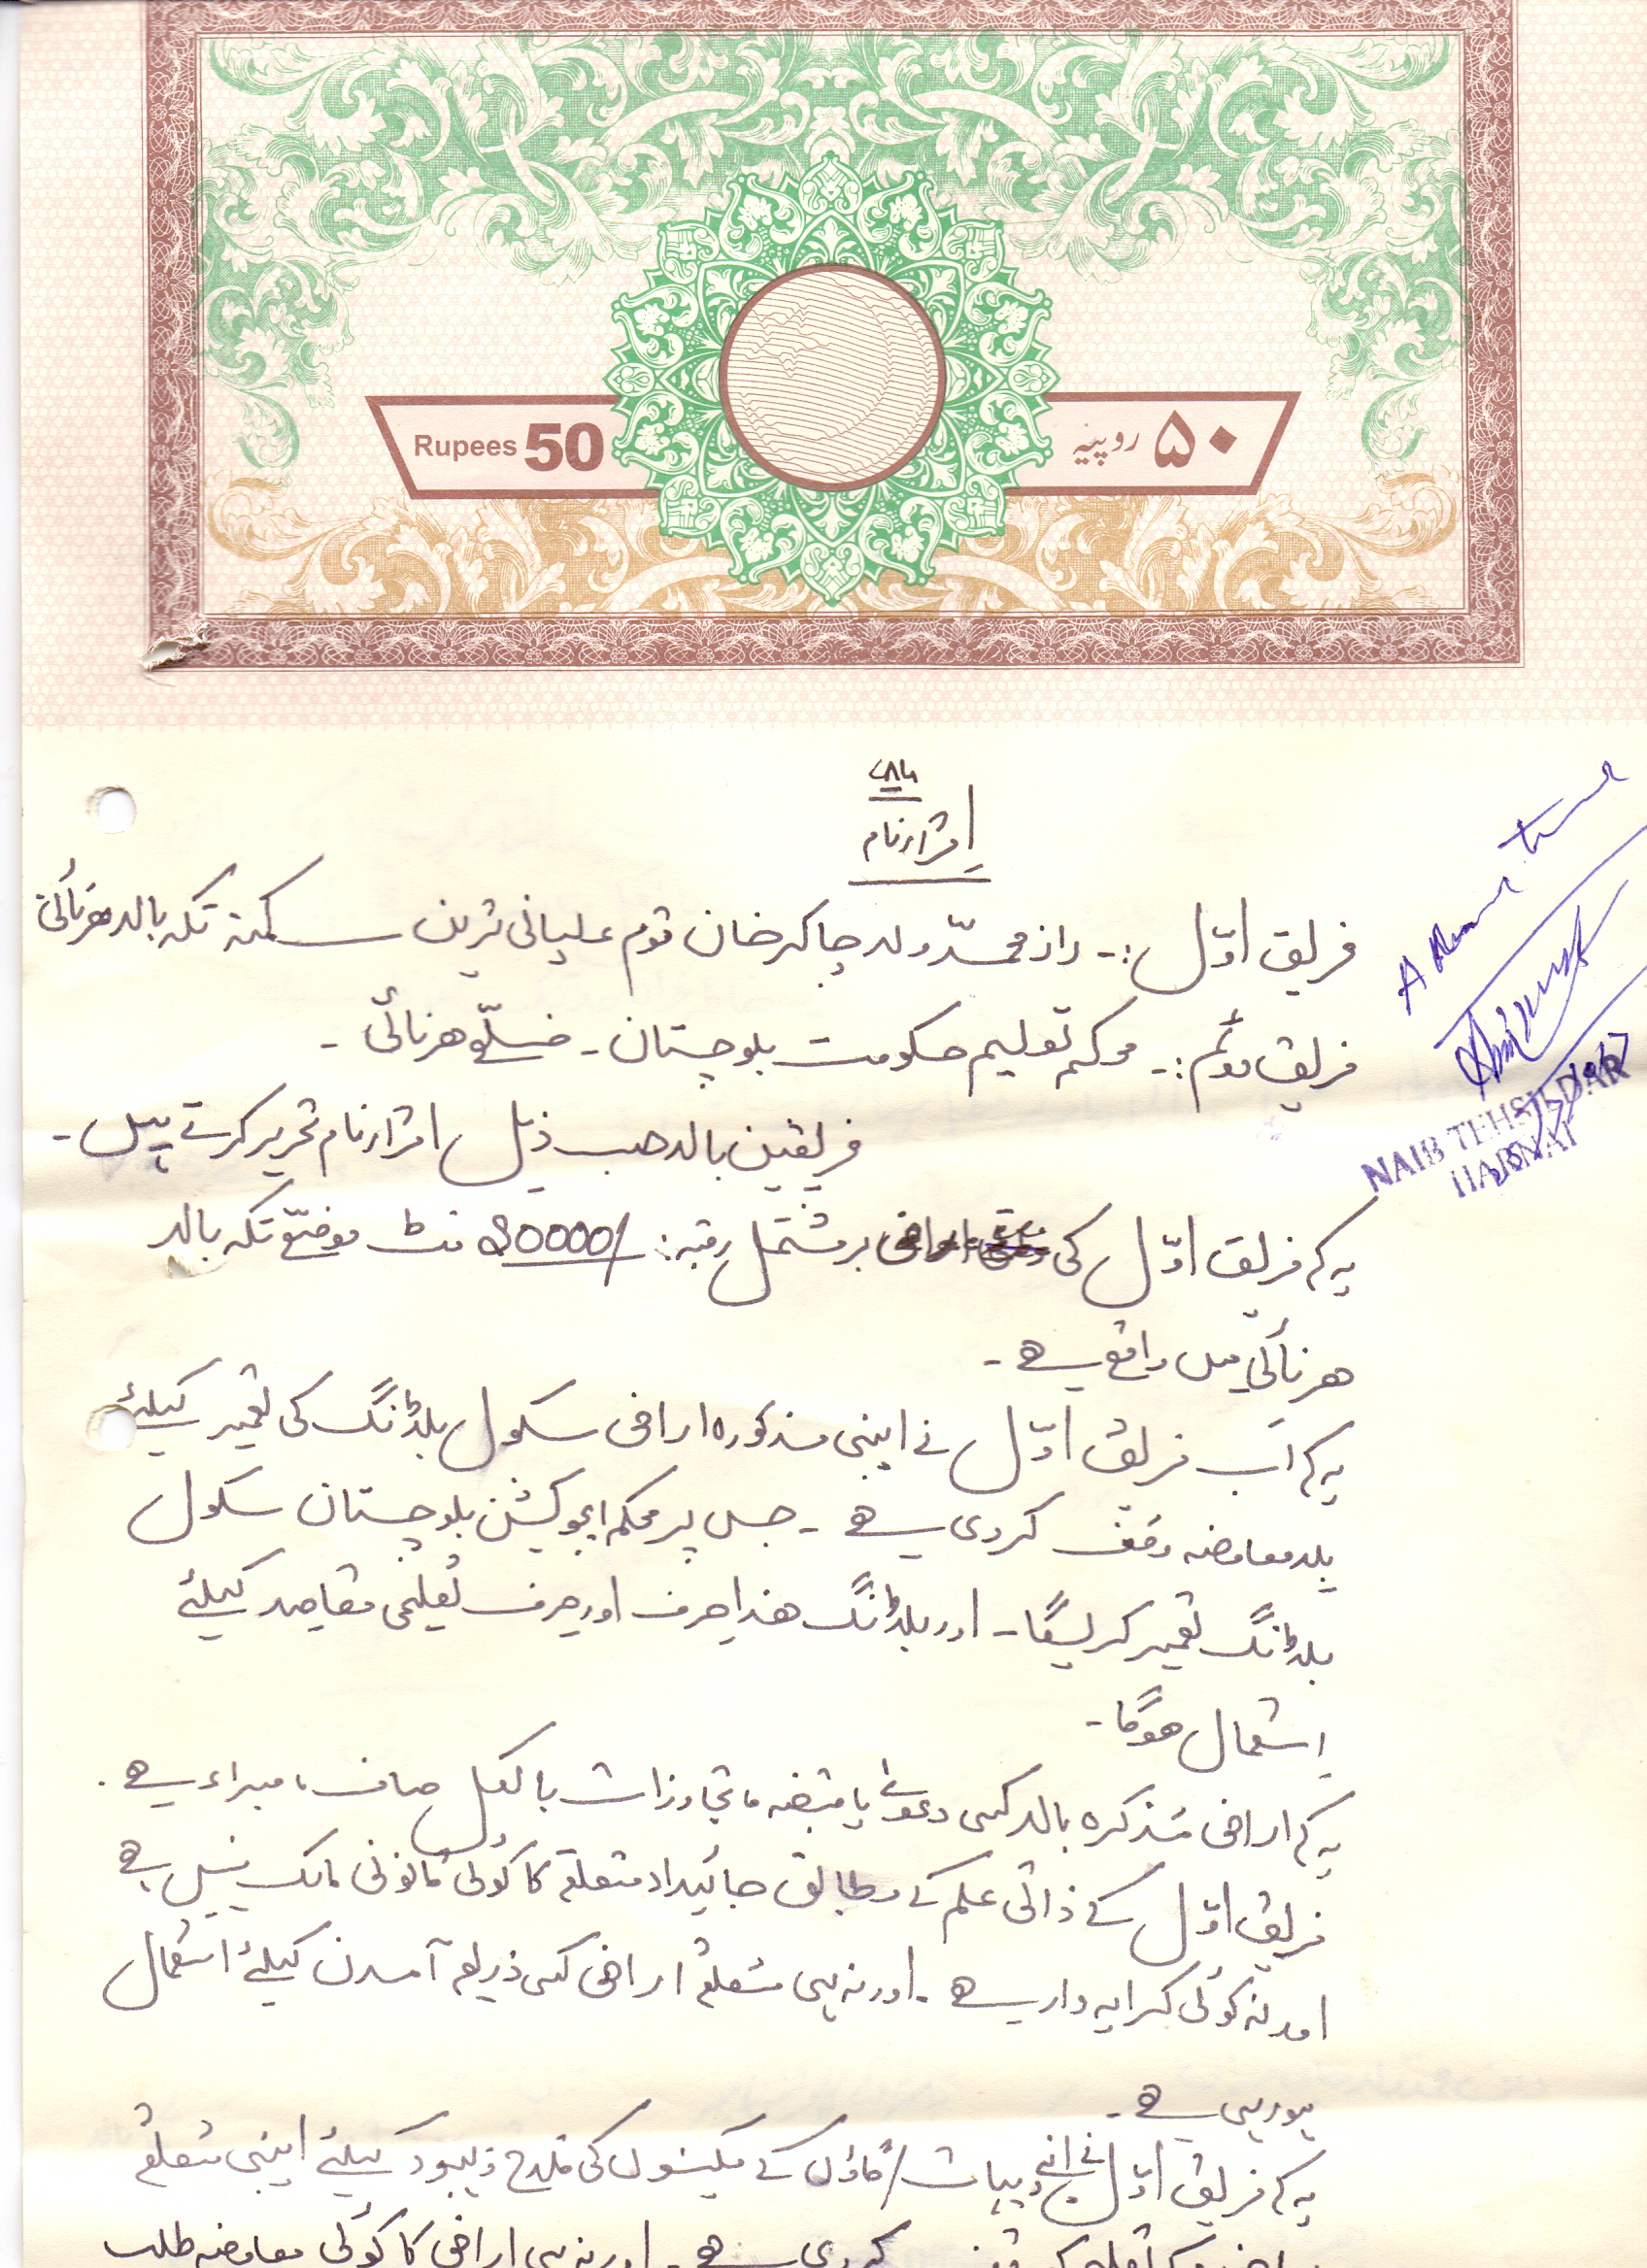 Rupees 50
۵۰ روپیہ
۷۸۶
اقرارنامہ
فریق اوّل :۔ رازمحمدّ ولد چاکرخان قوم علیانی ترین سکنہ تکہ بالا ھرنائی
فریق دوئم :۔ محکمہ تعلیم حکومت بلوچستان ۔ ضلع ھرنائی ۔
فریقین بالا حسب ذیل اقرارنامہ تحریر کرتے ہیں ۔
یہ کہ فریق اوّل کی اراضی برمشتمل رقبہ : 20000/ فٹ موضع تکہ بالا
ھرنائی میں واقع ہے ۔
یہ کہ اب فریق اوّل نے اپنی مذکورہ اراضی سکول بلڈنگ کی تعمیر کیلئے
بلا معاوضہ وقف کردی ہے ۔ جس پر محکمہ ایجوکیشن بلوچستان سکول
بلڈنگ تعمیر کریگا ۔ اور بلڈنگ ھذا صرف اور صرف تعلیمی مقاصد کیلئے
استعمال ھوگا ۔
یہ کہ اراضی مذکرہ بالا کسی دعوے یا قبضہ تجاوزات بالکل صاف ، مبراء ہے ۔
فریق اوّل کے ذاتی علم کے مطابق جائیداد متعلقہ کا کوئی قانونی مالک نہیں ہے
اور نہ کوئی کرایہ دار ہے ۔ اور نہ ہی متعلقہ اراضی کسی ذریعہ آمدن کیلئے استعمال
ہورہی ہے ۔
یہ کہ فریق اوّل نے اپنے دیہات / گاؤں کے مکینوں کی فلاح و بہبود کیلئے اپنی متعلقہ
کردی ہے ۔ اور نہ ہی اراضی کا کوئی معاوضہ طلب
NAIB TEHSILDAR
HARNAI